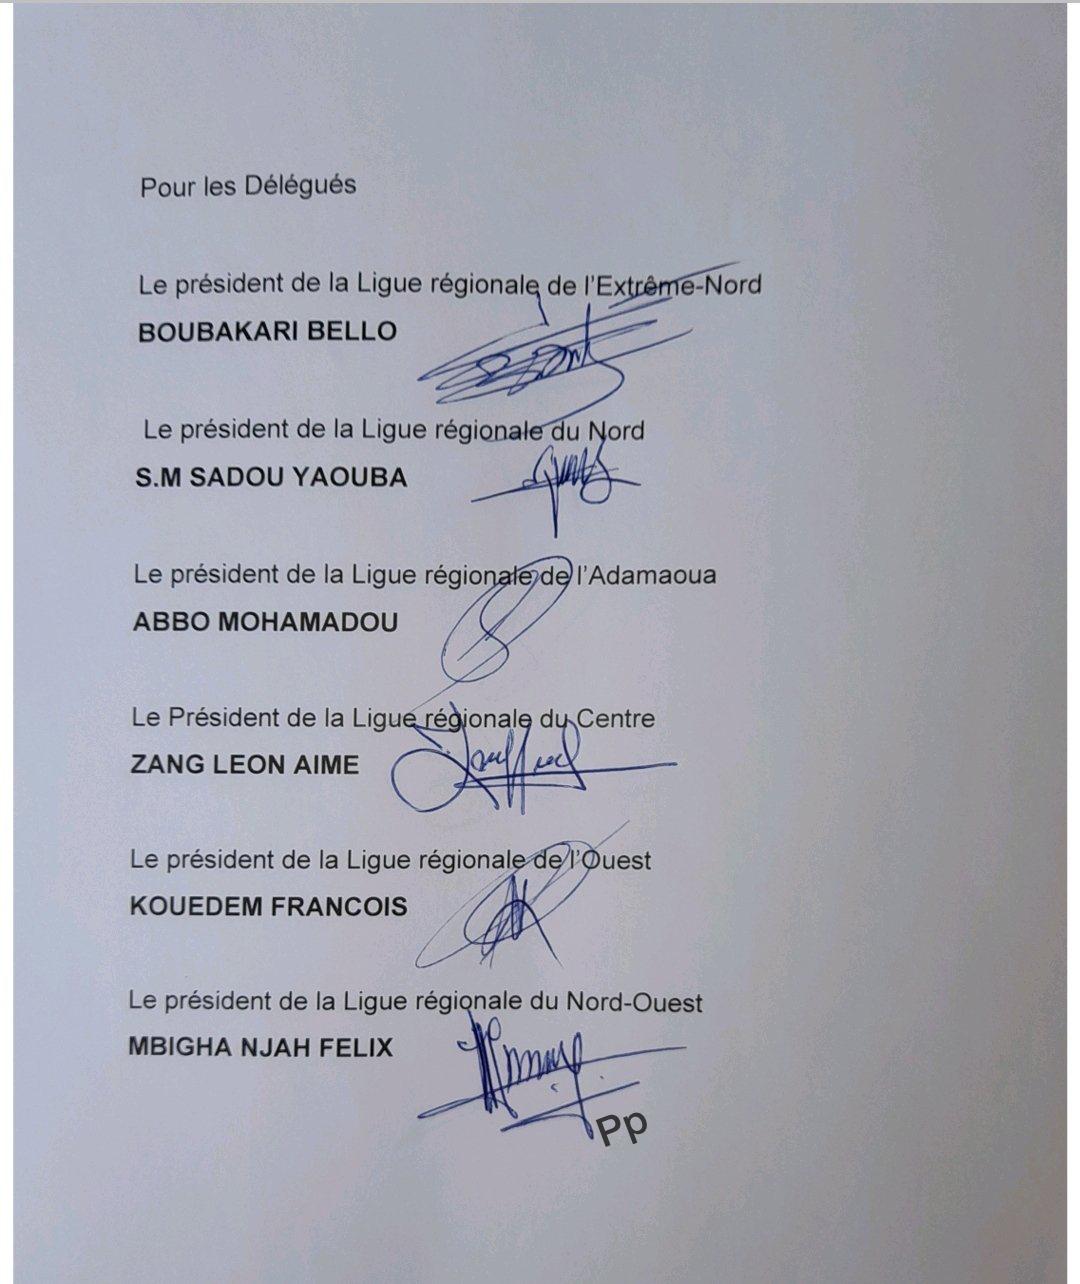 Pour les Délégués
Le président de la Ligue régionale de l'Extrême-Nord
BOUBAKARI BELLO
Le président de la Ligue régionale du Nord
S.M SADOU YAOUBA
Le président de la Ligue régionale de l'Adamaoua
ABBO MOHAMADOU
Le Président de la Ligue régionale du Centre
ZANG LEON AIME
Le président de la Ligue régionale de l'Ouest
KOUEDEM FRANCOIS
Le président de la Ligue régionale du Nord-Ouest
MBIGHA NJAH FELIX
Pp